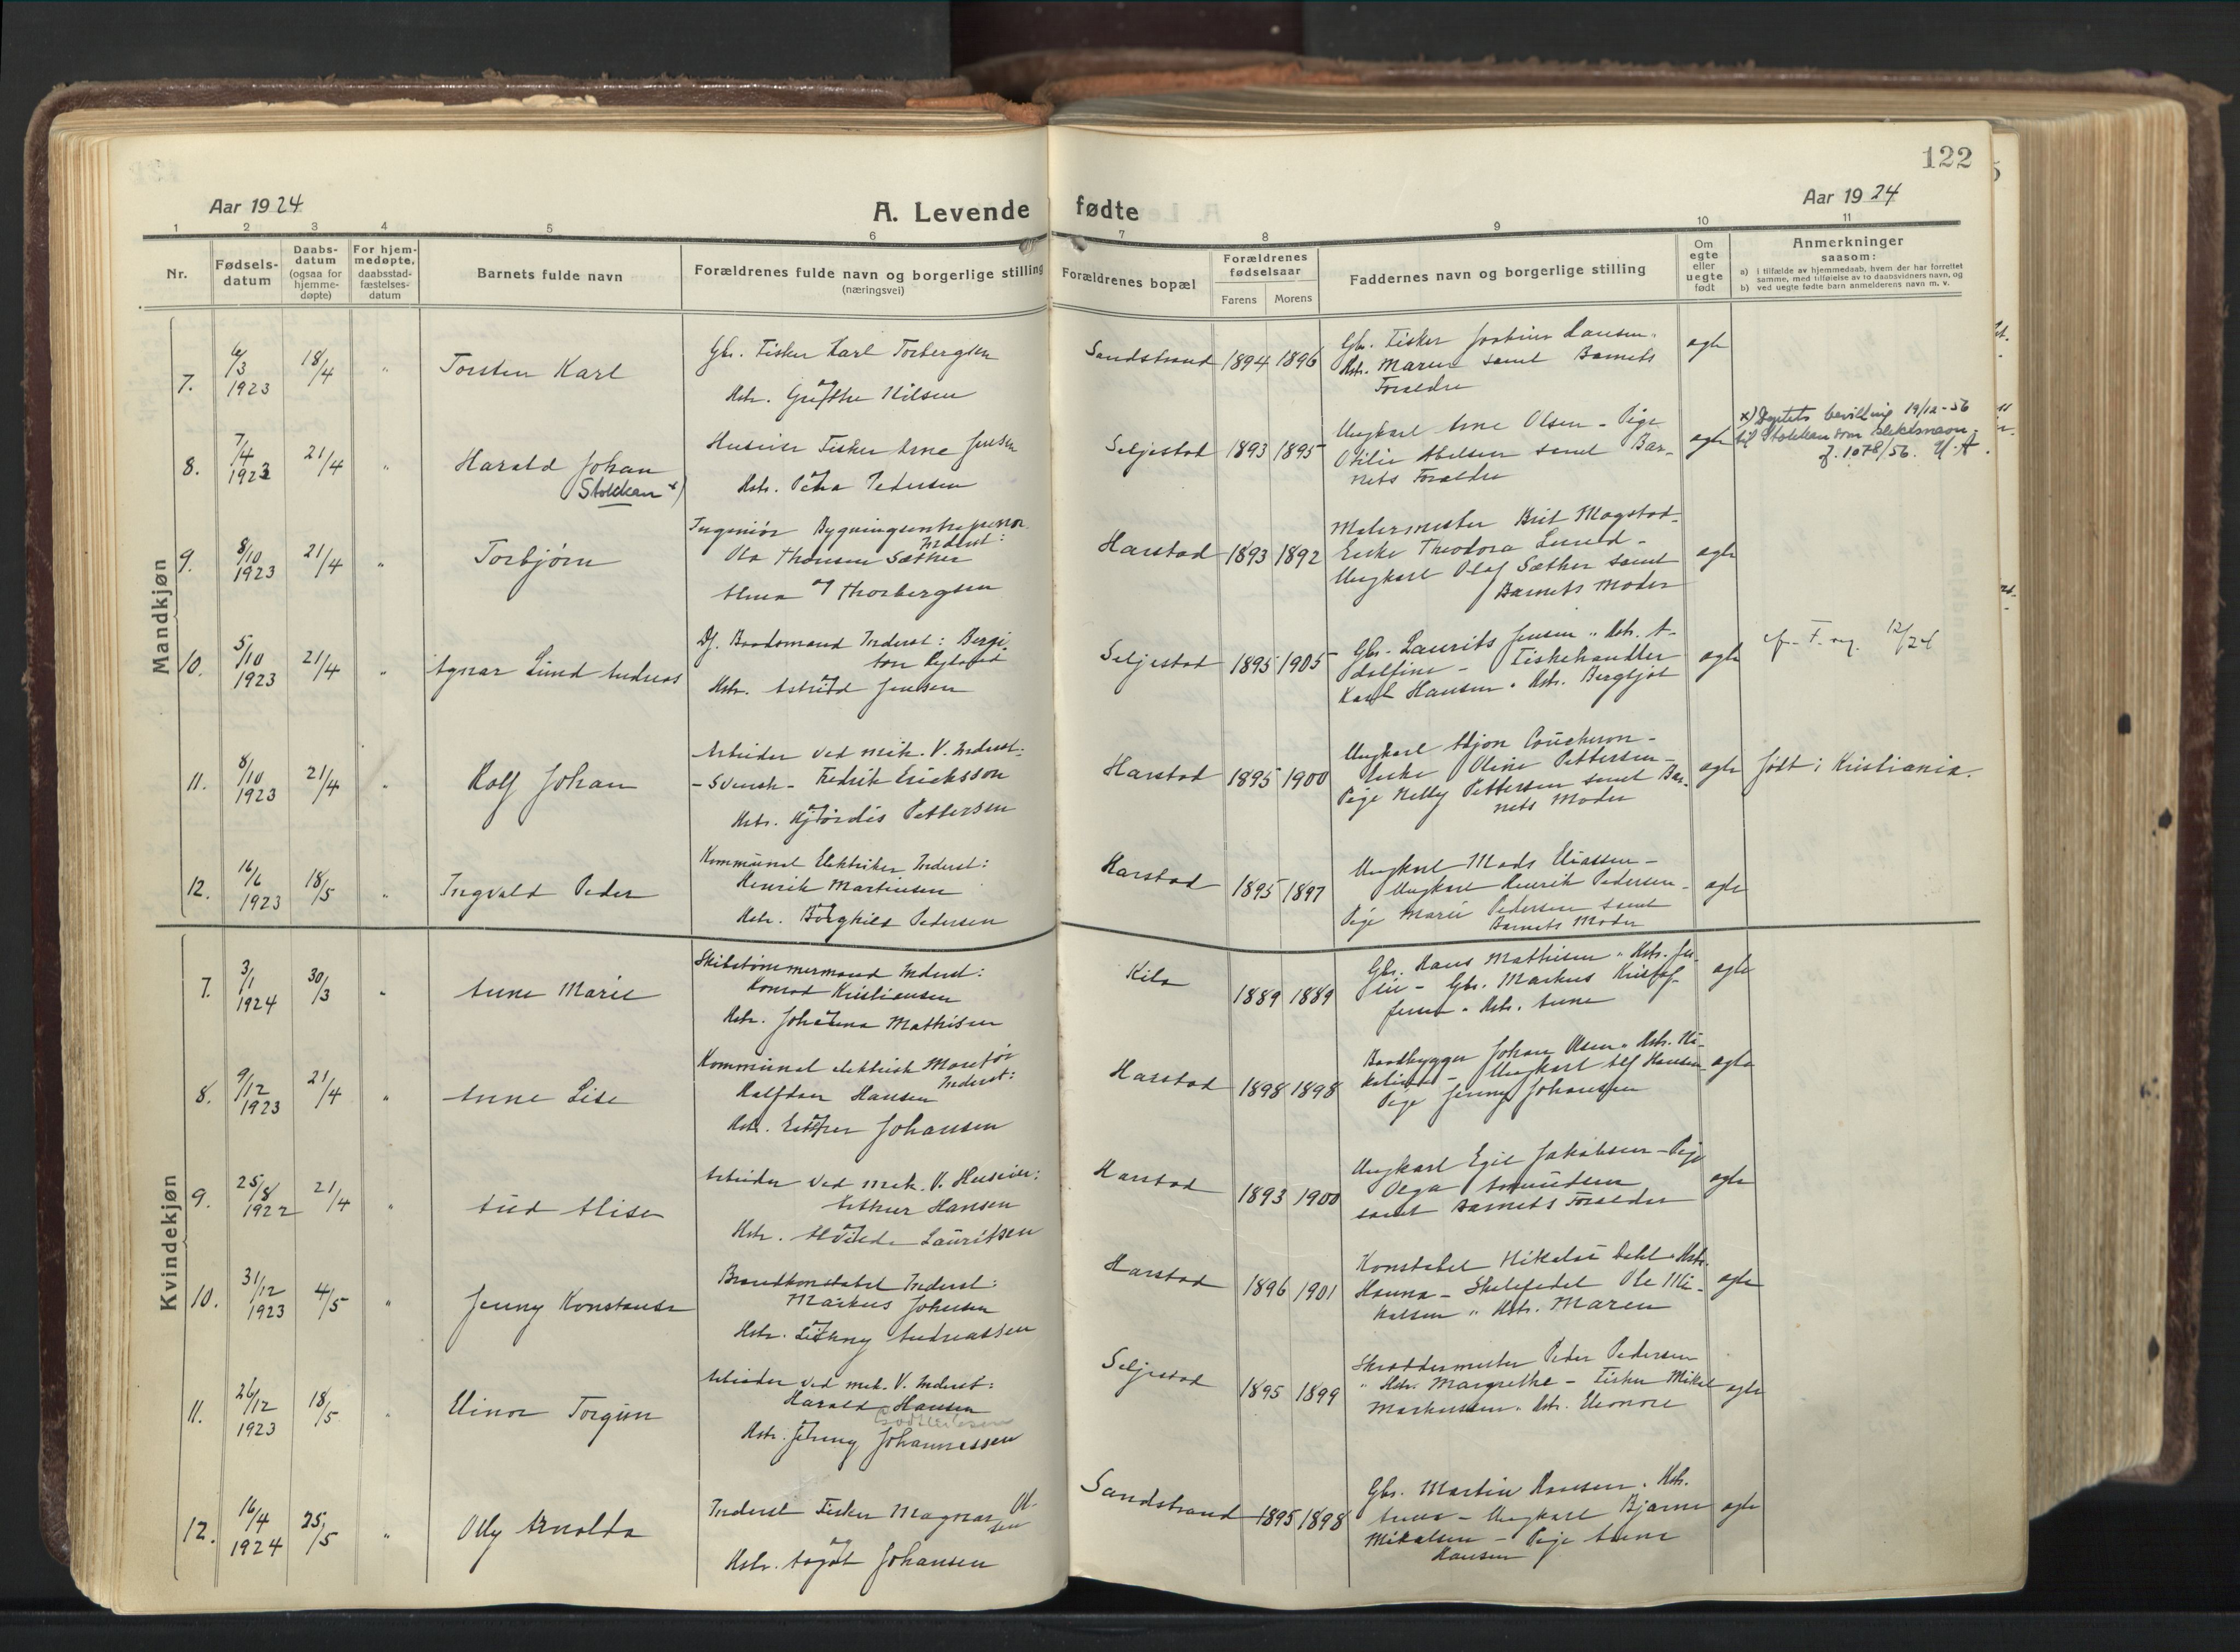 122
Aar 1924
A. Levende fødte
Aar 1924
1 2 3 4 5 6 7 8 9 10 11
Nr.
Fødsels-
datum
Daabs-
datum
(ogsaa for
hjemme-
døpte)
For hjem-
medøpte,
daabsstad-
fæstelses-
datum
Barnets fulde navn
Forældrenes fulde navn og borgerlige stilling
(næringsvei)
Forældrenes bopæl
Forældrenes
fødselsaar
Farens Morens
Faddernes navn og borgerlige stilling
Om
egte
eller
uegte
født
Anmerkninger
saasom:
a) i tilfælde av hjemmedaab, hvem der har forrettet
samme, med tilføielse av to daabsvidners navn, og
b) ved uegte fødte barn anmelderens navn m. v.
Mandkjøn
7. 6/3 1923 18/4 " Torsten Karl
Gbr. Fisker Karl Torbergsen
og
Hstr. Grethe Nilsen
Sandstrand 1894 1896
Gbr. Fisker Hansen "
Hstr. Maren samt Barnets
Foraldre
egte
8. 7/4 1923 21/4 " Harald Johan
Stokkan x)
Huseier Fisker Arne Jensen
og
Hstr. Petra Pedersen
Seljestad 1893 1895
Ungkarl Arne Olsen - Pige
Otilie Abelsen samt Bar-
nets Foraldre
egte
x) Dptets bevilling 19/12-56
til Stokkan som slektsnavn
J. 1078/56.
9. 8/10 1923 21/4 " Torbjørn
Ingeniør Bygningsentreprenør
Inderst:
Ola Thomsen Sæther
og
Alma Thorbergsen
Harstad 1893 1892
Malermester Brit Magstad -
Enke Theodora Lund -
Ungkarl Olaf Sæther samt
Barnets Moder
egte
10. 5/10 1923 21/4 " Agnar Lund Andreas
Df. Baadsmand Inderst:
og
Hstr. Astrid Jensen
Seljestad 1895 1905
Gbr. Laurits Jensen " Hstr. A-
dolfine - Fiskehandler
Karl Hansen " Hstr. Bergljot
egte
cfr. F. reg. 12/24
11. 8/10 1923 21/4 " Rolf Johan
Arbeider ved mek. V. Inderst:
- Svensk - Fredrik Ericksson
og
Hstr. Hjørdis Pettersen
Harstad 1895 1900
Ungkarl Coucheron -
Enke Oline Pettersen -
Pige Nelly Pettersen samt Bar-
nets Moder
egte
født i Kristiania.
12. 16/6 1923 18/5 " Ingvald Peder
Kommunal Elektriker Inderst:
Henrik Martinsen
og
Hstr. Borghild Pedersen
Harstad 1895 1897
Ungkarl Mads Eliassen -
Ungkarl Henrik Pedersen -
Pige Marie Pedersen samt
Barnets Moder
egte
Kvindekjøn
7. 3/1 1924 30/3 " Anne Marie
Skibstømmermand Inderst:
Konrad Kristiansen
og
Hstr. Johanna Mathisen
Kila 1889 1889
Gbr. Hans Mathisen " Hstr. Ju-
lie - Gbr. Markus Kristof-
fersen " Hstr. Anne
egte
8. 9/12 1923 21/4 " Anne Lise
Kommunal elektrisk Montør
Inderst:
Halfdan Hansen
og
Hstr. Esther Johansen
Harstad 1898 1898
Baadbygger Johan Olsen " Hstr. Ni-
koline - Ungkarl Alf Hansen -
Pige Jenny Johansen
egte
9. 25/8 1922 21/4 " Aud Alise
Arbeider ved mek. V. Huseier:
Arthur Hansen
og
Hstr. Alvilde Lauritsen
Harstad 1893 1900
Ungkarl Egil Jakobsen - Pige
Olga Amundsen
samt Barnets Foraldre
egte
10. 31/12 1923 4/5 " Jenny Konstanse
Brandkonstabel Inderst:
Markus Johnsen
og
Hstr. Andreassen
Harstad 1896 1901
Konstabel Nikolai Dahl " Hstr.
Hanna - Ole Mi-
kalsen " Hstr. Maren
egte
11. 26/12 1923 18/5 " Elinor Torgun
Arbeider ved mek. V. Inderst:
Harald Hansen
og
Hstr. Jenny Johannessen
Seljestad 1895 1899
Skræddermester Peder Pedersen
" Hstr. Margrethe - Fisker Mikal
Markussen " Hstr. Eleonore
egte
12. 16/4 1924 25/5 " Olly Arnolda
Inderst Fisker Magnar Ol-
sen
og
Hstr. Aagot Johansen
Sandstrand 1895 1898
Gbr. Martin Hansen " Hstr.
Anna - Ungkarl Bjarne
Mikalsen - Pige Anne
Hansen
egte